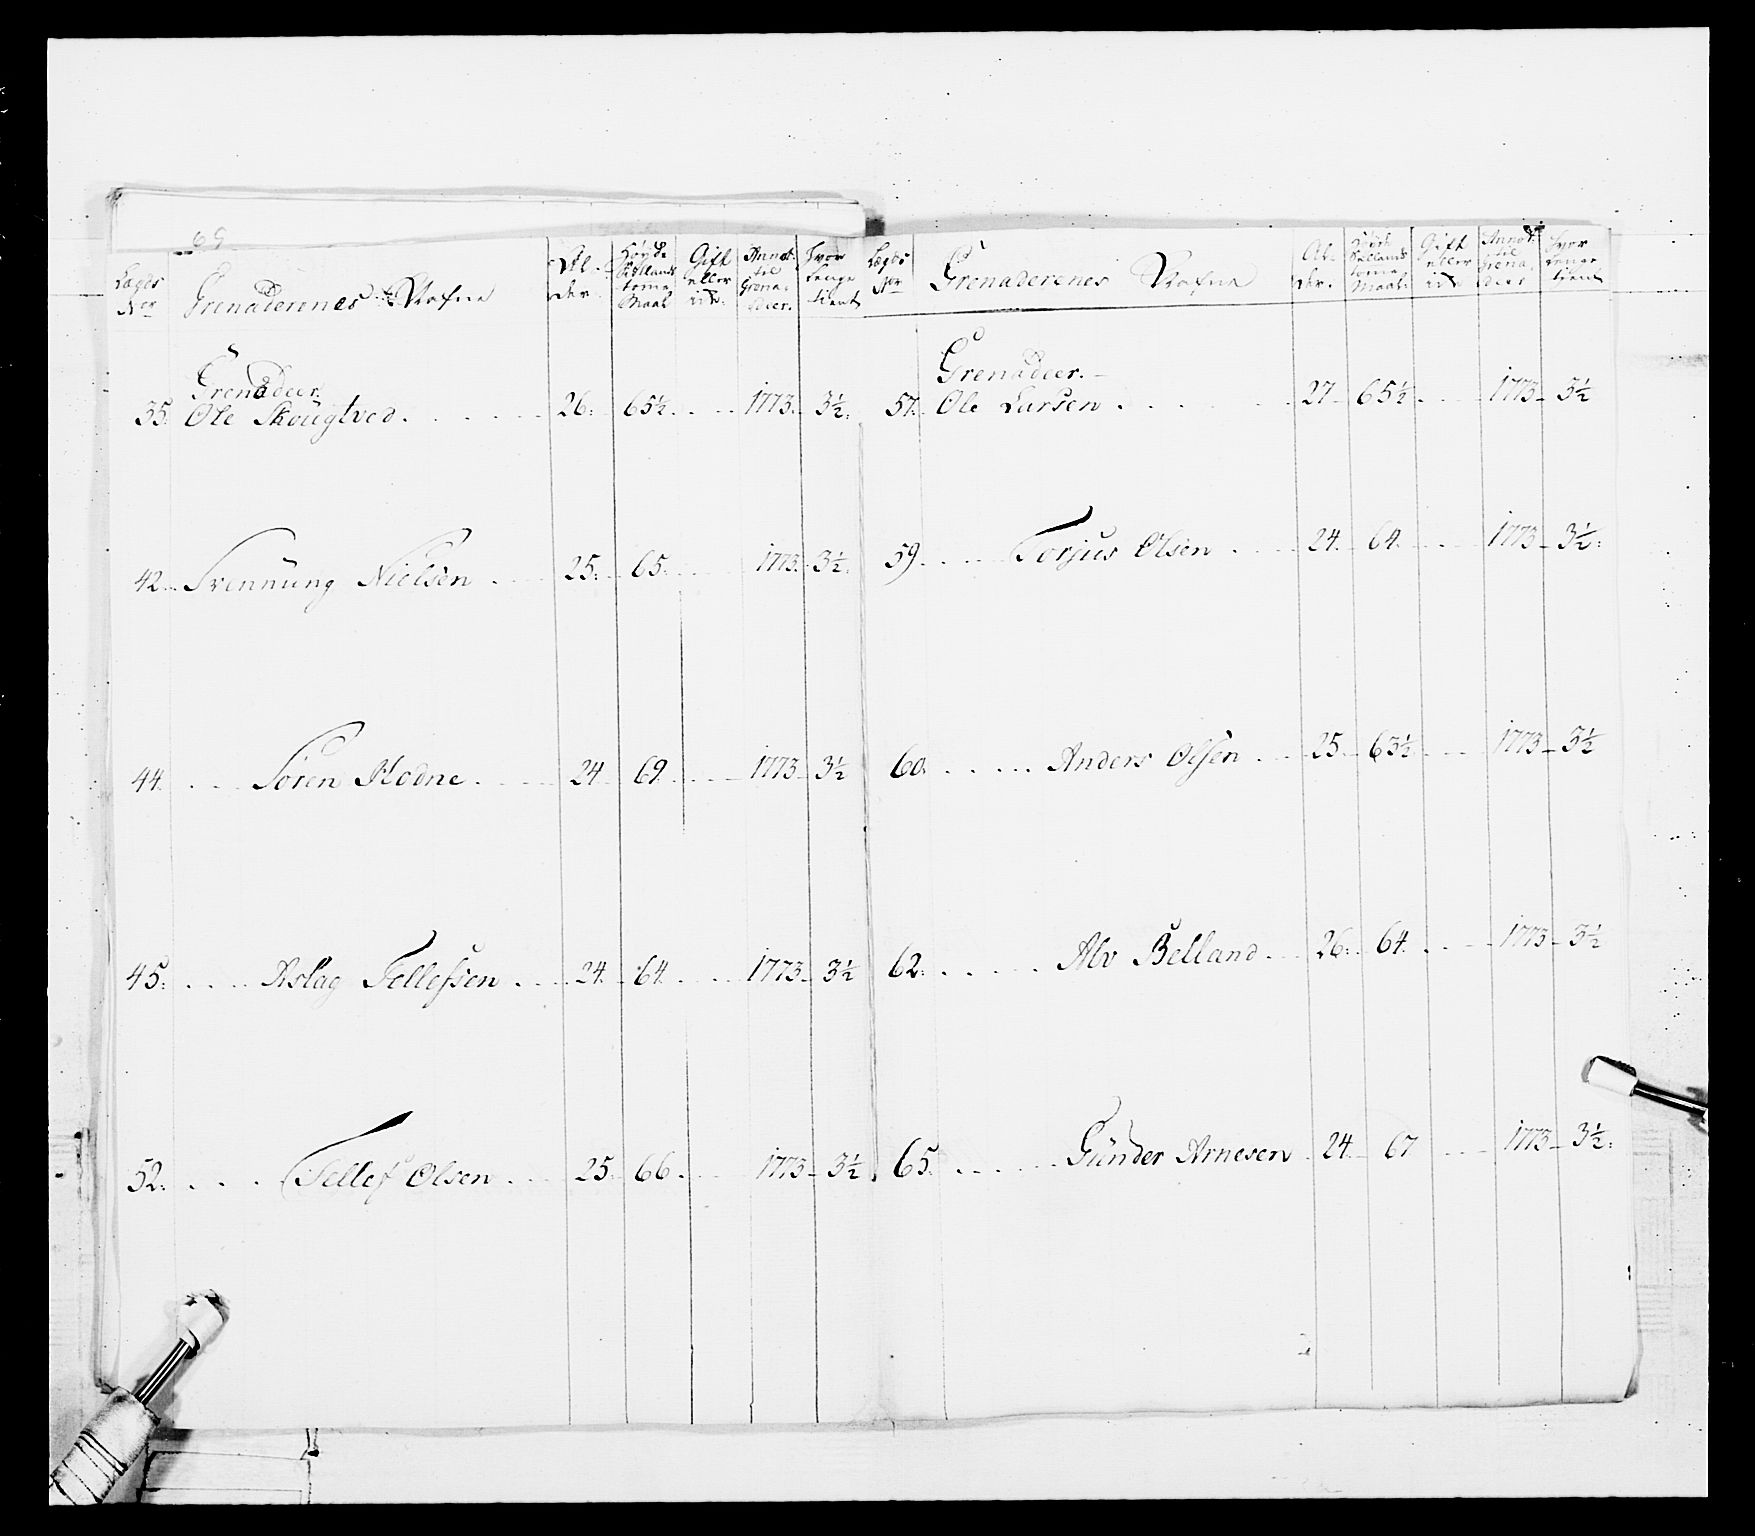 69
Lægds
Ner
Grenaderenes Nafne
Al-
der.
Høyde
Sellands
tome
Maal
Gift
eller
ei
Annot:
til
Grena-
deer.
Hvor
lenge
tient
Grenadeer.
35. Ole Skougtved. 26. 65½. 1773. 3½.
42. Svennüng Nielsen 25. 65. 1773. 3½.
44. Søren Modne 24. 69. 1773. 3½
45. Aslag Tellefsen 24. 64. 1773. 3½
52. Tellef Olsen 25. 66. 1773. 3½
Lægds
Ner
Grenaderenes Nafne
Al-
der.
Høyde
Sellands
tome
Maal.
Gift
eller
ei
Annot:
til
Grena-
deer
Hvor
lenge
tient
Grenadeer.
57. Ole Larsen 27 65½. 1773. 3½
59. Torjus Olsen 24. 64. 1773. 3½.
60. Anders Olsen 25. 63½ 1773. 3½
62. Alv Belland 26. 64. 1773. 3½
65. Günder Arnesen 24. 67 1773. 3½.